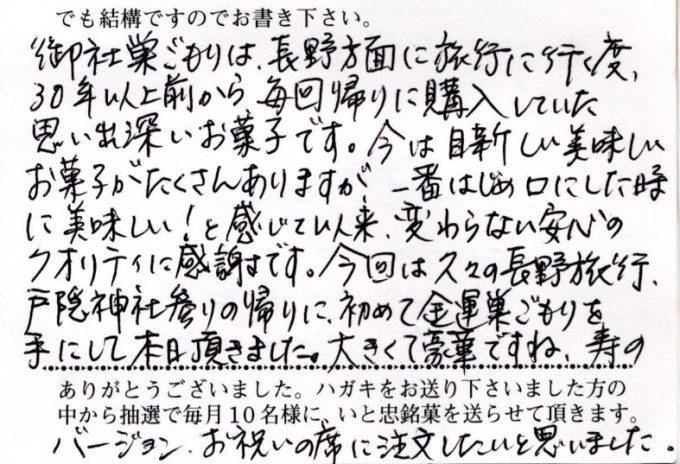 でも結構ですのでお書き下さい。
御社巣ごもりは、長野方面に旅行に行く度、
30年以上前から毎回帰りに購入していた
思い出深いお菓子です。今は目新しい美味しい
お菓子がたくさんありますが、一番はじめ口にした時
に美味しい！と感じて以来、変わらない安心の
クオリティに感謝です。今回は久々の長野旅行、
戸隠神社参りの帰りに、初めて金運巣ごもりを
手にして本日頂きました。大きくて豪華ですね、寿の
ありがとうございました。ハガキをお送り下さいました方の
中から抽選で毎月10名様に、いと忠銘菓を送らせて頂きます。
バージョン、お祝いの席に注文したいと思いました。